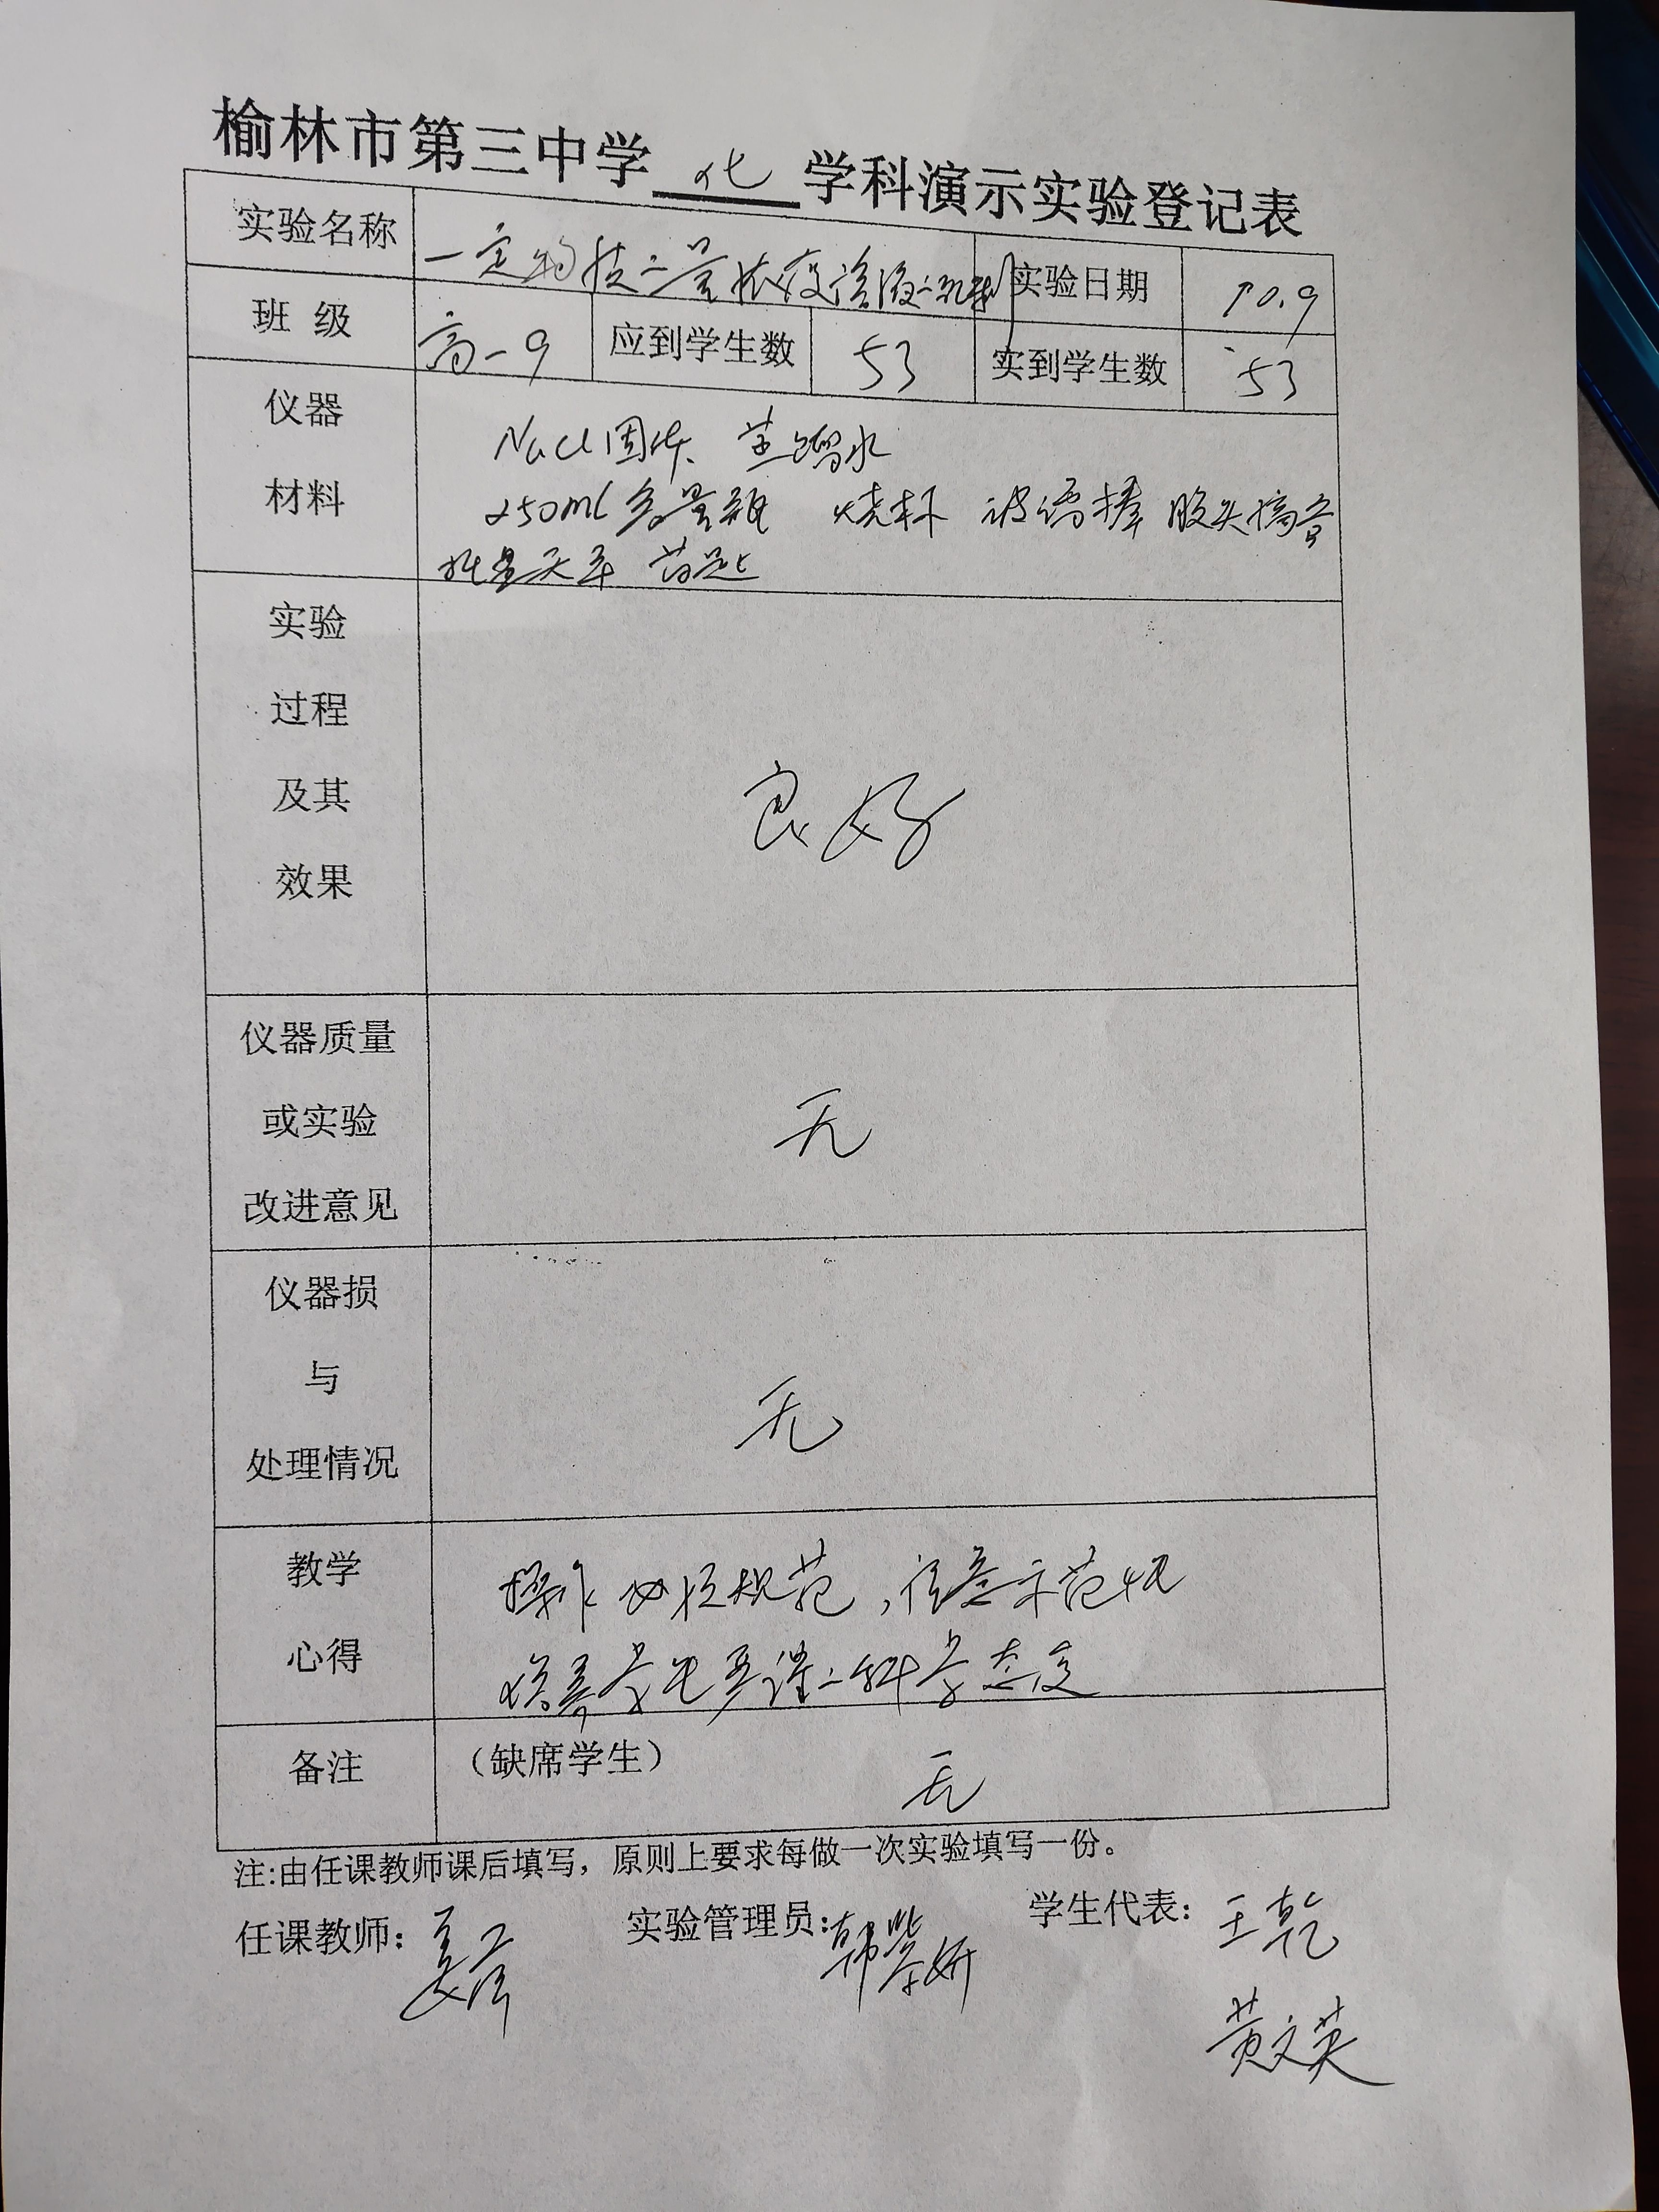 榆林市第三中学 化 学科演示实验登记表
实验名称 一定物质之量浓度溶液之配制 实验日期 10.9
班 级 高一9 应到学生数 53 实到学生数 53
仪器
材料
NaCl固体、蒸馏水
250ml容量瓶 烧杯 玻璃棒 胶头滴管
托盘天平 药匙
实验
过程
及其
效果
良好
仪器质量
或实验
改进意见
无
仪器损
与
处理情况
无
教学
心得
操作必须规范,注意示范性
培养学生严谨之科学态度
备注 (缺席学生) 无
注:由任课教师课后填写,原则上要求每做一次实验填写一份。
任课教师: 实验管理员: 学生代表: 王乾
黄文英